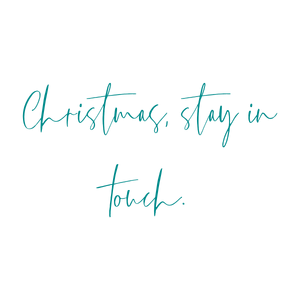 Christmas, stay in
touch.